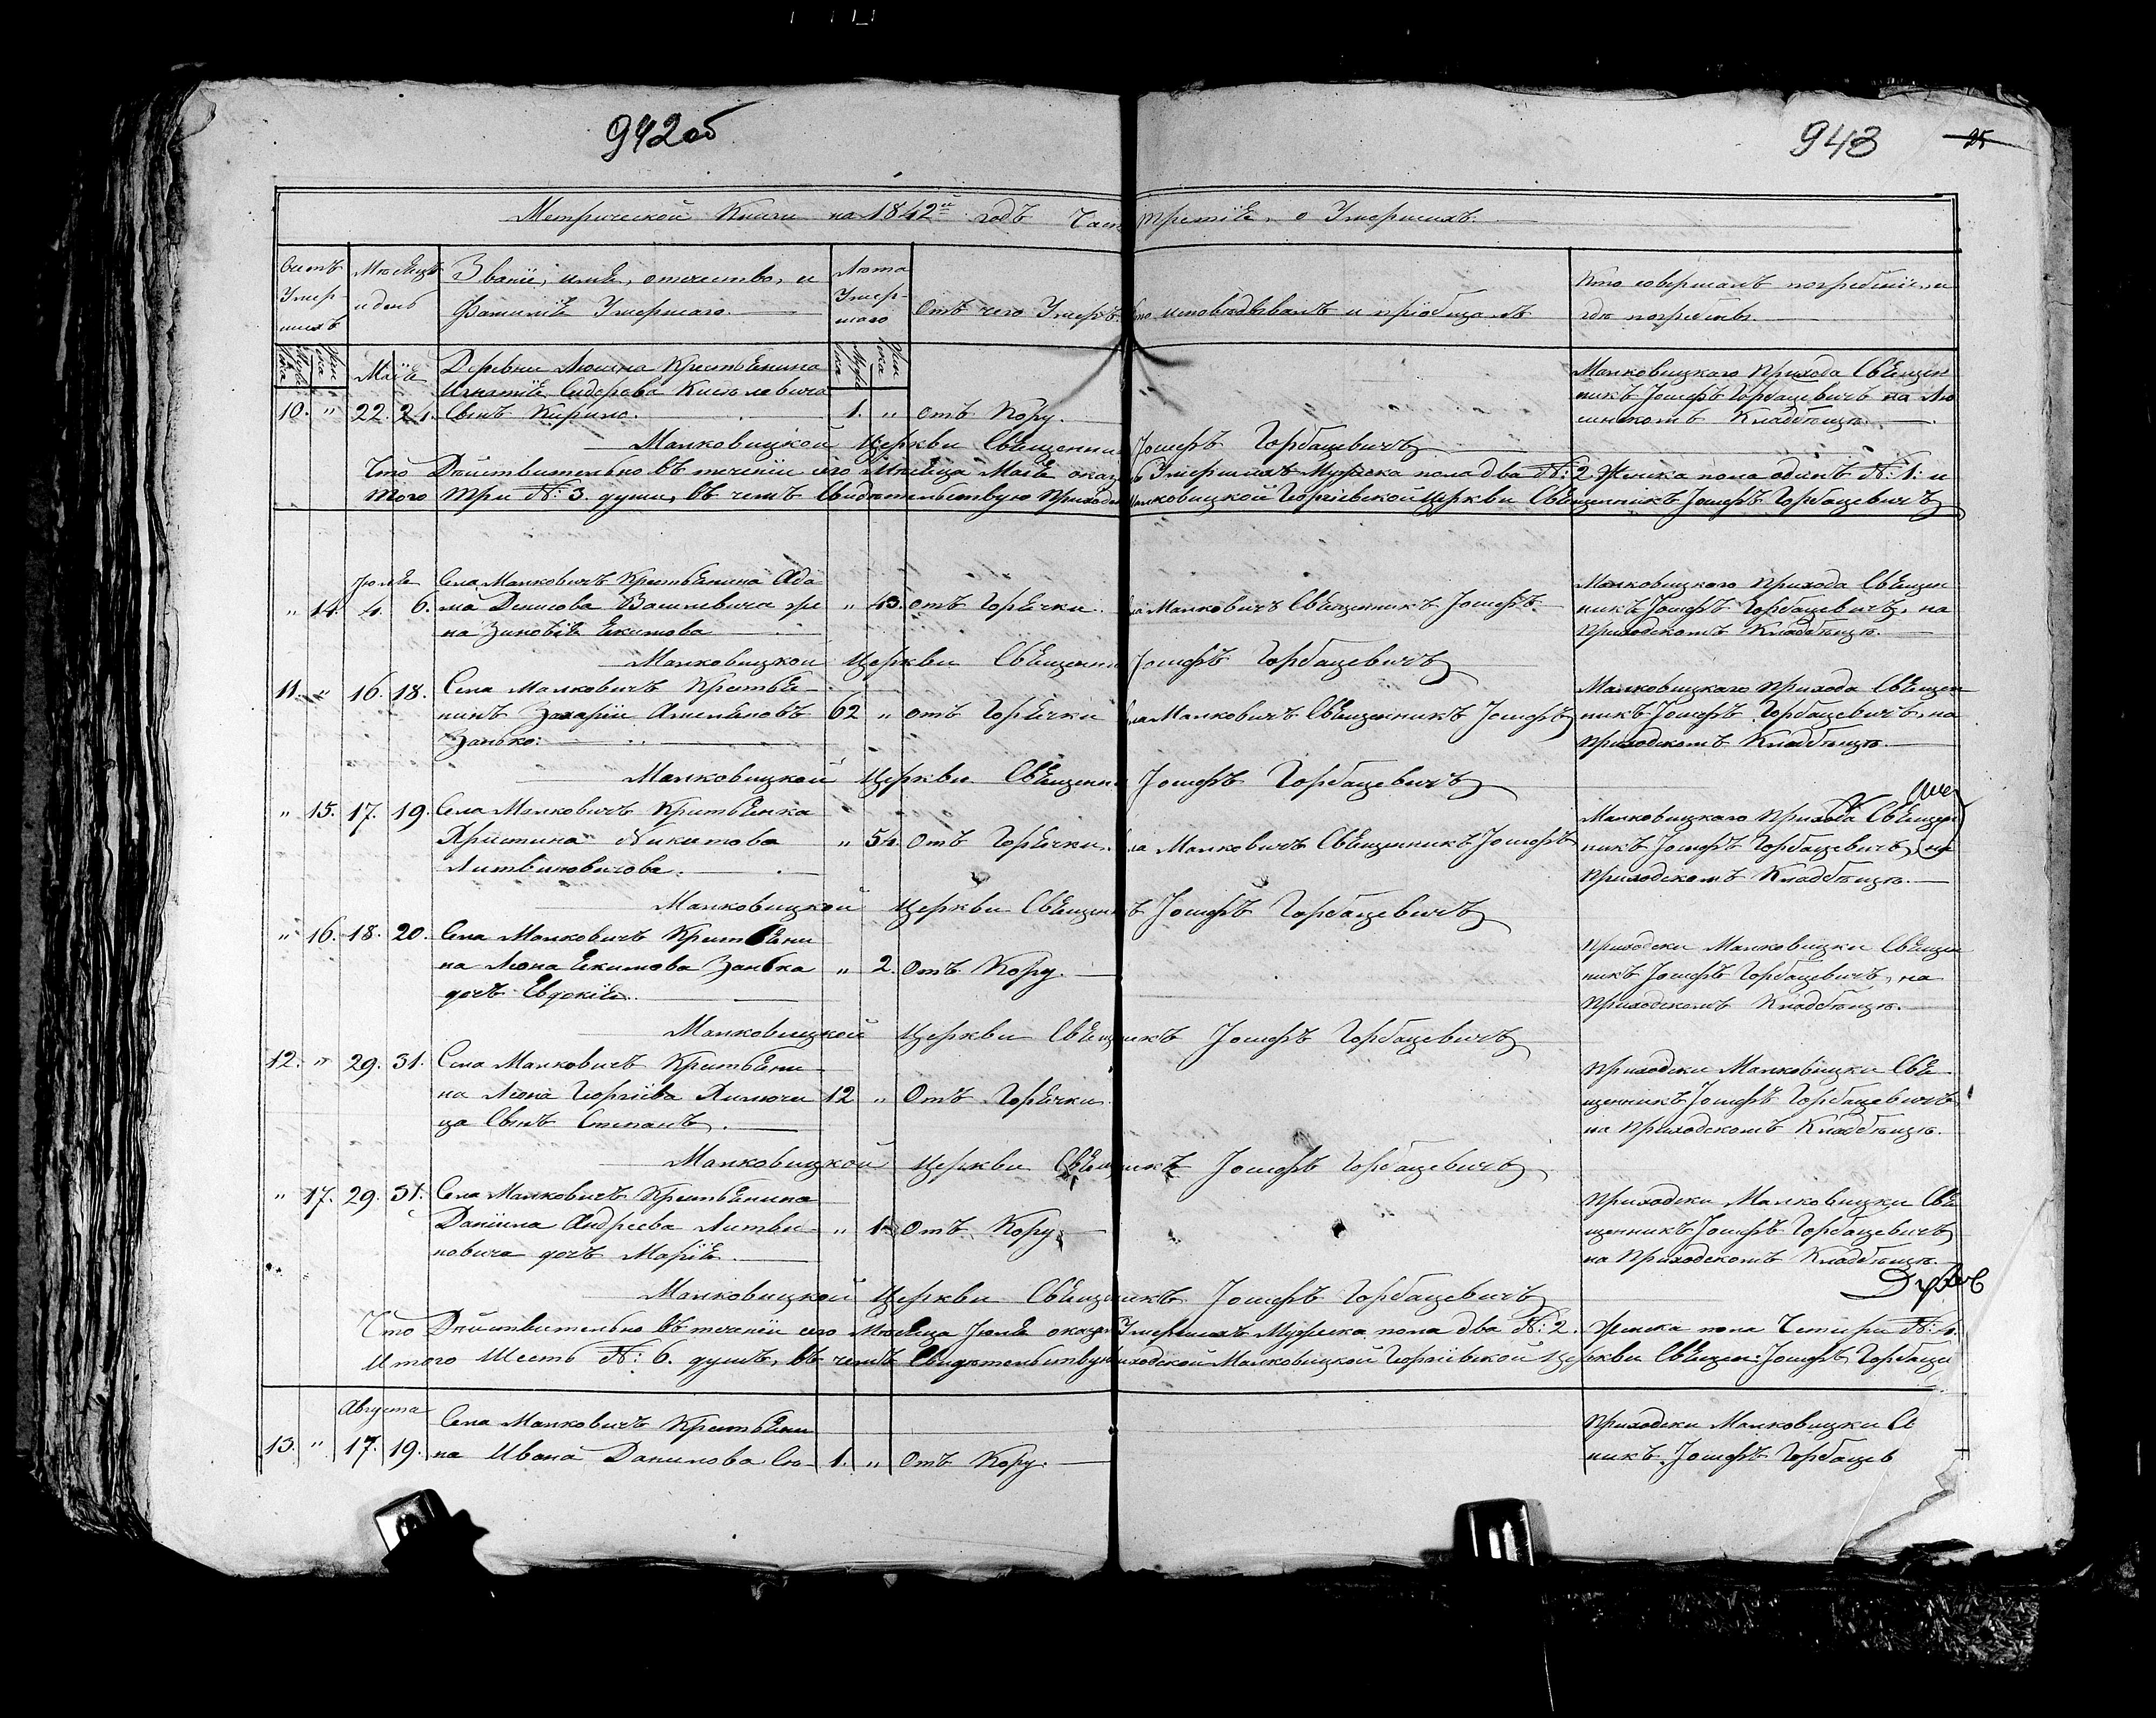 942об
943
Метрической Книги на 1842й годъ Част третіѧ, о Умершихъ.
Счетъ Умершихъ
Мѣсѧцъ и день
Званіе, имѧ, отчество, и Фамиліѧ Умершаго.
Лѣта Умершаго
Отъ чего Умеръ.
исповѣдывалъ и пріобщалъ
Кто совершалъ погребеніе, и гдѣ погребенъ.
Маіѧ
Деревни Люсина Крестьѧнина
Игнатіѧ Сидорова Киселевича
10. " 22. 24. Сынъ Кирило. 1. " отъ Кору.
Малковицкаго Прихода Свѧщен
никъ Іосифъ Горбацевичъ на Лю
синскомъ Кладбищѣ.
Малковицкой Церкви Свѧщенни Іосифъ Горбацевичъ
Что Дѣйствительно въ теченіи сего Мѣсѧца Маіѧ оказ Умершихъ Мужеска пола два №: 2 Женска пола одинъ №: 1: и
того три №: 3. души, въ чемъ Свидѣтельствую Приход Малковицкой Георгіевской Церкви Свѧщенникъ Іосифъ Горбацевичъ
Іюлѧ
Села Малковичъ Крестьѧнина Ада
" 14. 4. 6. ма Денисова Василевича же " 43. отъ Горѧчки. Малковичъ Свѧщенникъ Іосифъ
на Зиновіѧ Екимова
Малковицкого Прихода Свѧщен
никъ Іосифъ Горбацевичъ, на
Приходскомъ Кладбищѣ.
Малковицкой Церкви Свѧщенни Іосифъ Горбацевичъ
11. " 16. 18. Села Малковичъ Крестьѧ
нинъ Захарій Омельѧновъ 62 " отъ Горѧчки Малковичъ Свѧщенникъ Іосифъ
Занько.
Малковицкаго Прихода Свѧщен
никъ Іосифъ Горбацевичъ, на
Приходскомъ Кладбищѣ.
Малковицкой Церкви Свѧщенни Іосифъ Горбацевичъ
" 15. 17. 19. Села Малковичъ Крестьѧнка
Христина Никитова " 54. отъ Горѧчки. Малковичъ Свѧщенникъ Іосифъ
Литвиновичова.
Малковицкаго Прихода Свѧщен
никъ Іосифъ Горбацевичъ, на
Приходскомъ Кладбищѣ.
Малковицкой Церкви Свѧщенн Іосифъ Горбацевичъ
" 16. 18. 20. Села Малковичъ Крестьѧни
на Леона Екимова Занька " 2. Отъ Кору.
дочь Евдокіѧ.
Приходски Малковицки Свѧщен
никъ Іосифъ Горбацевичъ, на
Приходскомъ Кладбищѣ.
Малковицкой Церкви Свѧщ никъ Іосифъ Горбацевичъ
12. " 29. 31. Села Малковичъ Крестьѧни
на Леона Георгіева 12 " Отъ Горѧчки.
ца Сынъ Степанъ.
Приходски Малковицки Свѧ
щенникъ Іосифъ Горбацевичъ
на Приходскомъ Кладбищѣ.
Малковицкой Церкви Свѧщ никъ Іосифъ Горбацевичъ
" 17. 29. 31. Села Малковичъ Крестьѧнина
Даніила Андреева Литви " 1. Отъ Кору
новича дочь Маріѧ
Приходски Малковицки Свѧ
щенникъ Іосифъ Горбацевичъ
на Приходскомъ Кладбищѣ.
Малковицкой Церкви Свѧщ никъ Іосифъ Горбацевичъ
Что Дѣйствительно въ теченіи сего Мѣсѧца Іюлѧ оказа Умершихъ Мужеска пола два №: 2. Женска пола Четыри №: 4.
Итого Шесть №: 6. душъ, въ чемъ Свидѣтельству Приходской Малковицкой Георгіевской Церкви Свѧщен: Іосифъ Горбаце
Августа
Села Малковичъ Крестьѧни
13. " 17. 19. на Ивана Данилова Сю 1. " Отъ Кору.
Приходски Малковицки С
никъ Іосифъ Горбацев